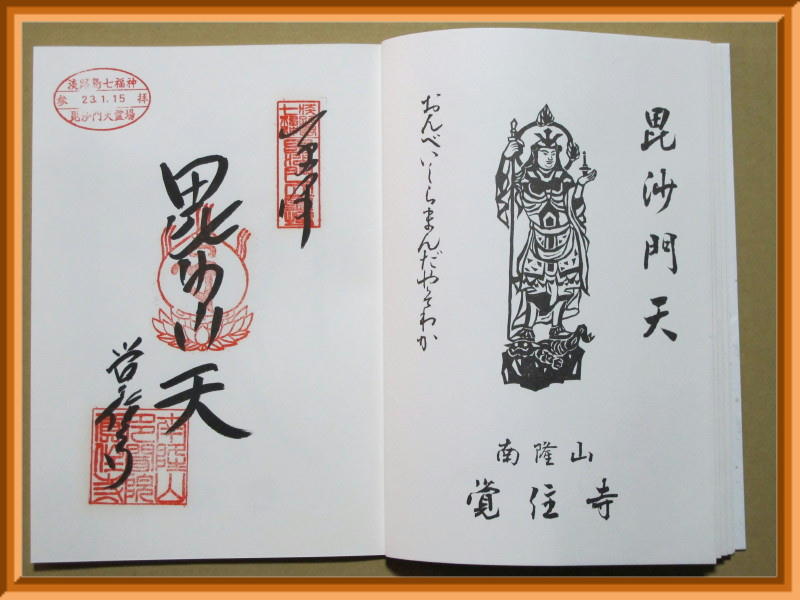 毘沙門天
おんべいしらまんだやそわか
南隆山
覚住寺
奉拝
毘沙門天
覚住寺
淡路島七福神
参 23.1.15 拝
毘沙門天霊場
南隆山
覚住寺